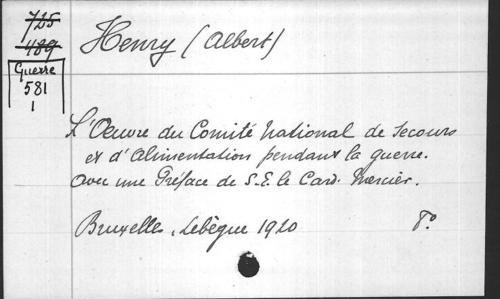 725
489
Guerre
581
1
Henry (Albert)
L'Oeuvre du Comité National de Secours
et d'Alimentation pendant la guerre.
Avec une Préface de S.E. le Card. Mercier.
Bruxelles, Lebègue 1920 8°